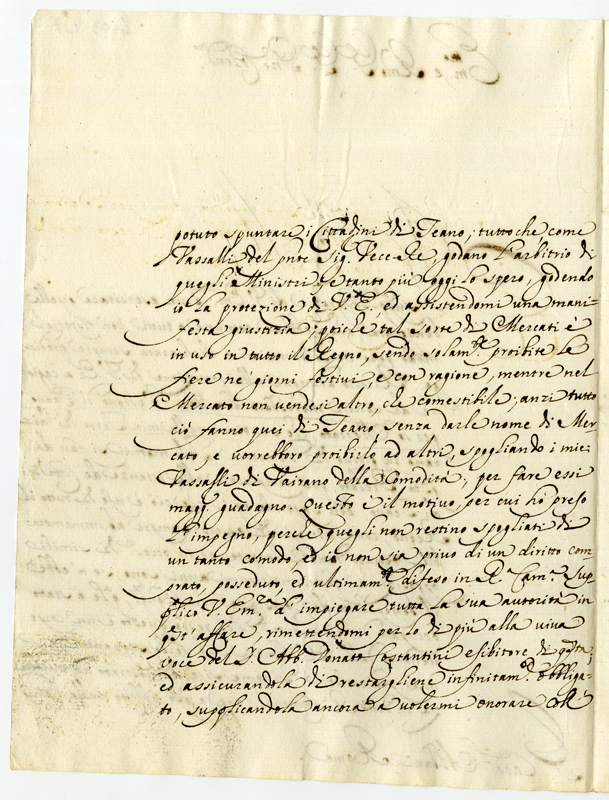 potuto spuntare i Cittadini di Teano, tuttoche come
Vassalli del pnte Sig. Vece-Re, godano l'arbitrio di
quegli Ministri, e tanto più oggi lo spero, godendo
io la protezione di V. E. ed assistendomi una mani-
festa giustizia; poiche tal sorte di Mercati è
in uso in tutto il Regno, sendo solam.te proibite le
fiere ne giorni festivi, e con ragione, mentre nel
Mercato non vendesi altro, che comestibile; anzi tutto
ciò fanno quei di Teano senza darle nome di Mer-
cato, e vorrebbero proibirlo ad altri, spogliando i miei
Vassalli di Vairano della comodità, per fare essi
magg. guadagno. Questo è il motivo, per cui hò preso
l'impegno, perche quegli non restino spogliati di
un tanto comodo, ed io non sia privo di un diritto com
prato, posseduto, ed ultimam.te difeso in R. Cam.a Sup
plico V. Em.za d'impiegare tutta la sua autorità in
qst'affare, rimettendomi per lo di più alla viva
voce del S. Ab. Donato Costantini esibitore di qsta,
ed assicurandola di restargliene infinitam.te obbliga-
to, supplicandola ancora a volermi onorare col